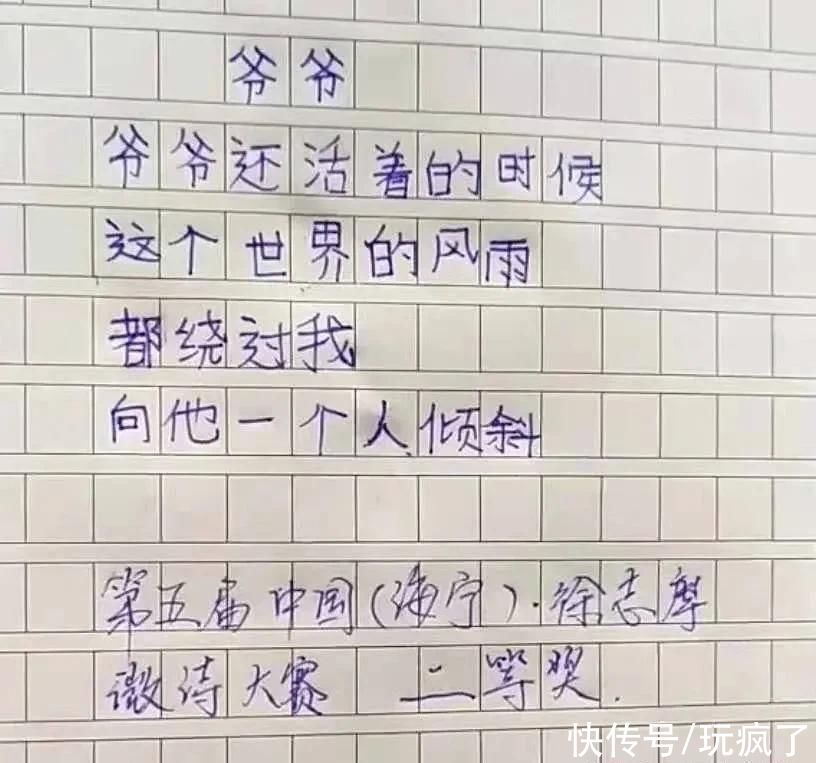 爷爷
爷爷还活着的时候
这个世界的风雨
都绕过我
向他一个人倾斜
第五届中国(海宁)·徐志摩
微诗大赛 二等奖.
快传号/玩疯了